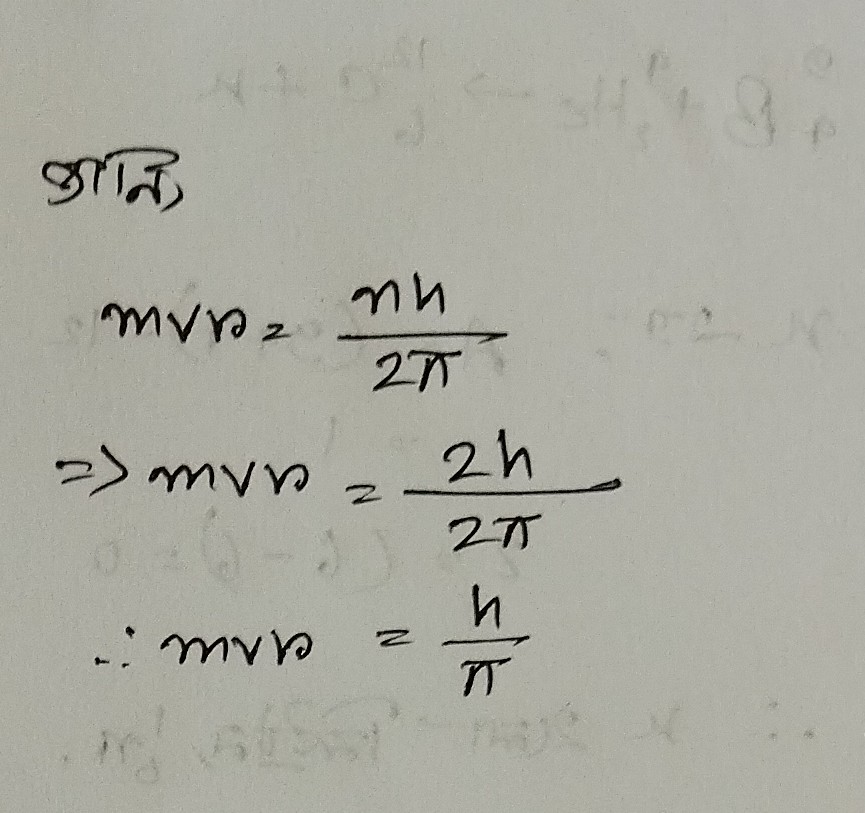 জানি,
mvr = nh/2π
=> mvr = 2h/2π
∴ mvr = h/π